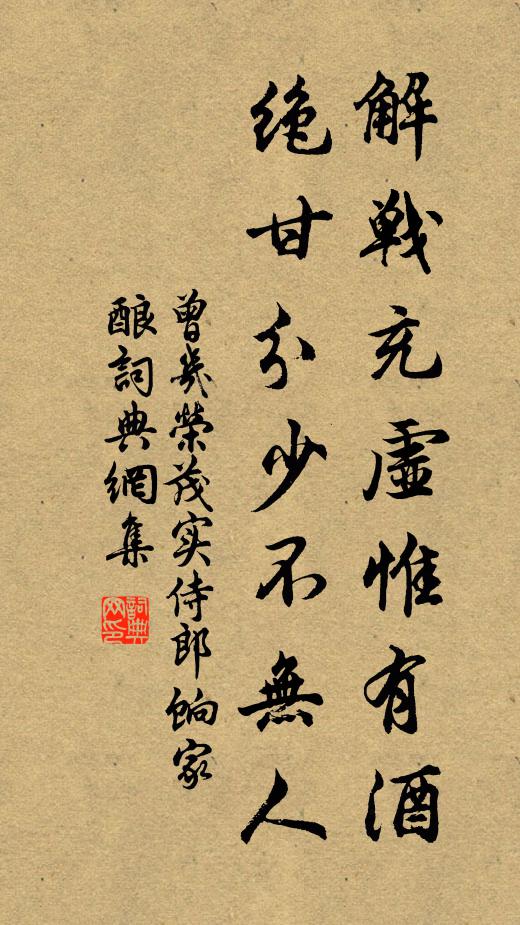 解戦充虛惟有酒
絶甘分少不無人
曾幾榮茂实侍郎餉家
酿詞典網集
詞典网印